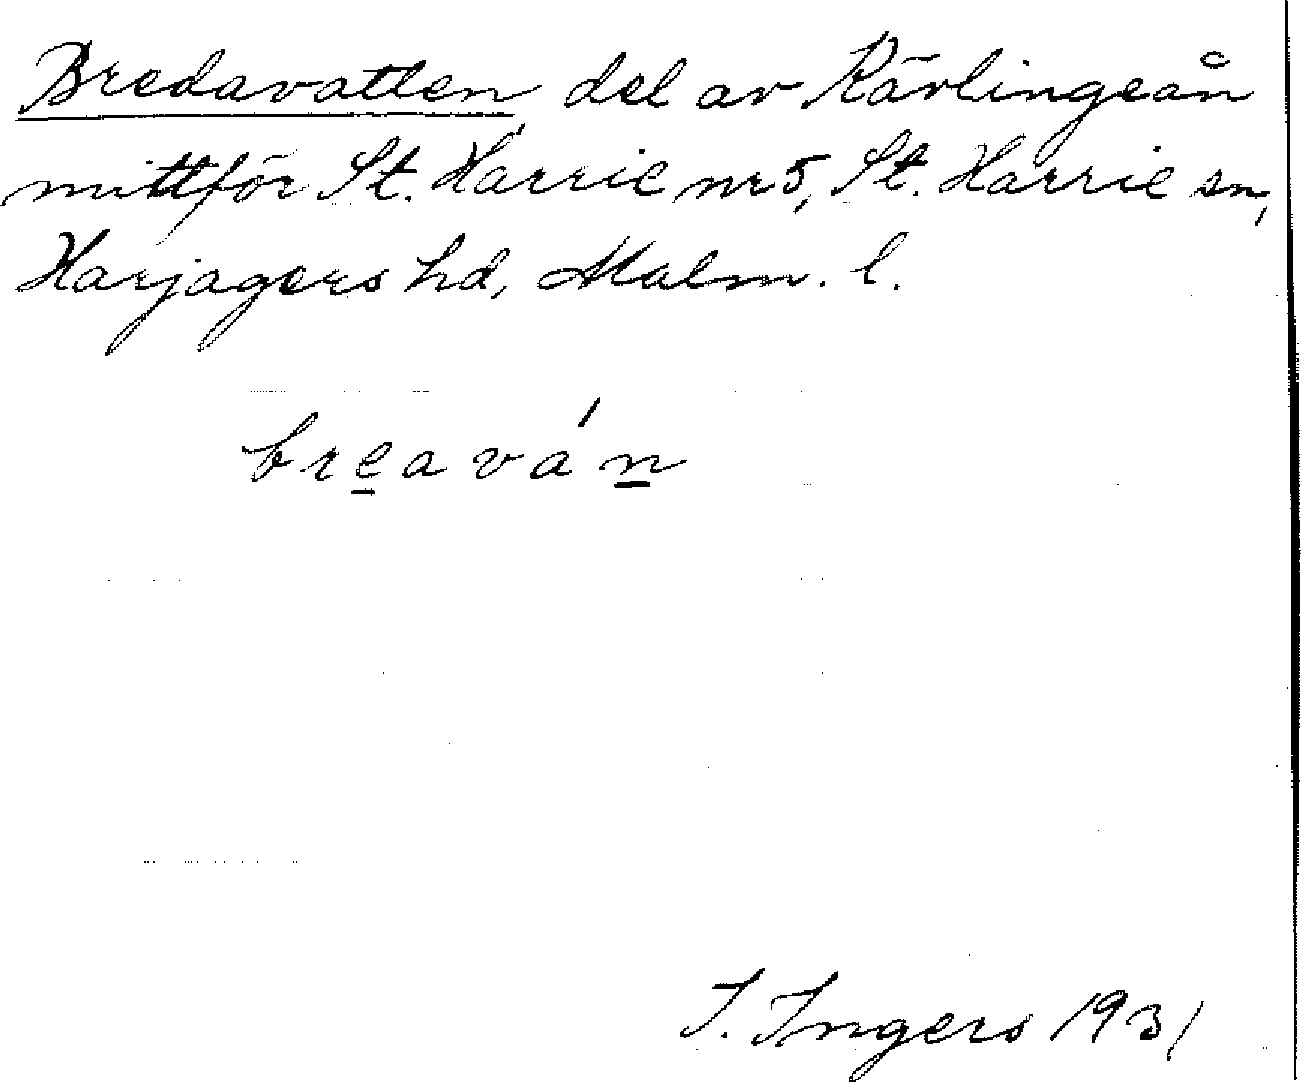 Bredavatten, del av Kävlingeån
mittför St. Harrie nr 5, St. Harrie sn,
Harjagers hd, Malm. l.
breaván
I. Ingers 1931